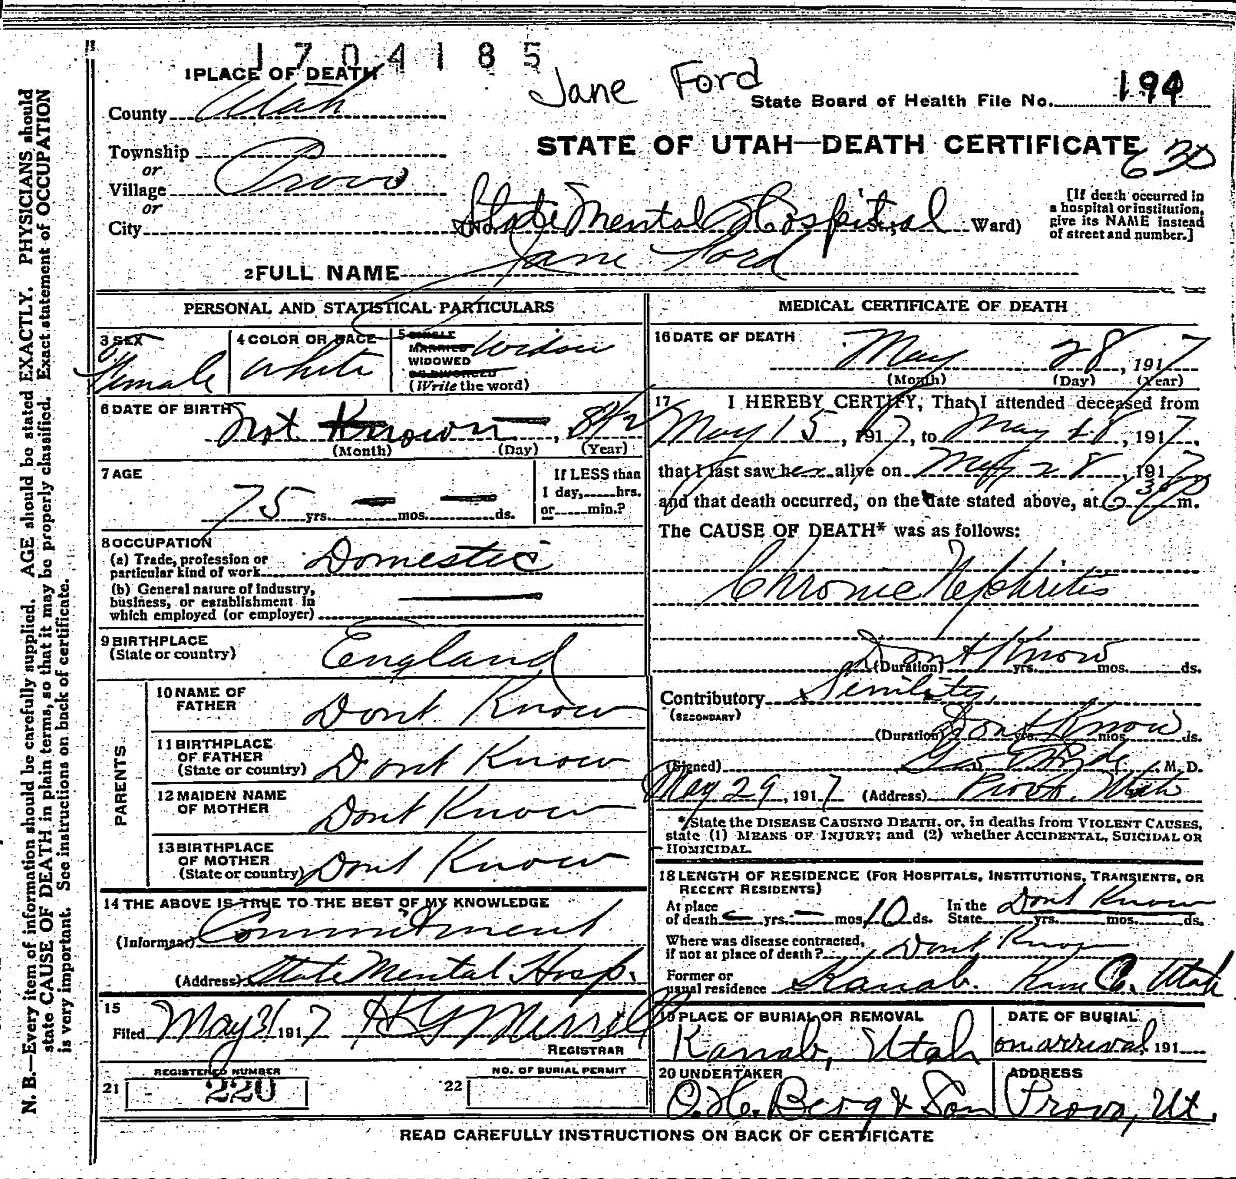 1704185
1 PLACE OF DEATH
Jane Ford
State Board of Health File No. 194
County Utah
STATE OF UTAH—DEATH CERTIFICATE
630
Township
or
Village Provo
or
City (No. State Mental Hospital St.; Ward)
[If death occurred in
a hospital or institution,
give its NAME instead
of street and number.]
2 FULL NAME Jane Ford
PERSONAL AND STATISTICAL PARTICULARS
3 SEX
Female
4 COLOR OR RACE
White
5 SINGLE
MARRIED
WIDOWED
OR DIVORCED
(Write the word)
Widow
6 DATE OF BIRTH
Not Known — , 842
(Month) (Day) (Year)
7 AGE
75 yrs. — mos. — ds.
If LESS than
1 day, hrs.
or min.?
8 OCCUPATION
(a) Trade, profession or
particular kind of work Domestic
(b) General nature of industry,
business, or establishment in
which employed (or employer) —
9 BIRTHPLACE
(State or country) England
PARENTS
10 NAME OF
FATHER Dont Know
11 BIRTHPLACE
OF FATHER
(State or country) Dont Know
12 MAIDEN NAME
OF MOTHER Dont Know
13 BIRTHPLACE
OF MOTHER
(State or country) Dont Know
14 THE ABOVE IS TRUE TO THE BEST OF MY KNOWLEDGE
(Informant) Commitment
(Address) State Mental Hosp.
15
Filed May 31 1917 H G Merrill
REGISTRAR
REGISTERED NUMBER
21 220
NO. OF BURIAL PERMIT
22
MEDICAL CERTIFICATE OF DEATH
16 DATE OF DEATH
May 28, 1917
(Month) (Day) (Year)
17 I HEREBY CERTIFY, That I attended deceased from
May 15, 1917, to May 28, 1917,
that I last saw her alive on May 28, 1917
and that death occurred, on the date stated above, at 6 30 P m.
The CAUSE OF DEATH* was as follows:
Chronic Nephritis
(Duration) Dont Know yrs. mos. ds.
Contributory Senility,
(SECONDARY)
(Duration) Dont Know yrs. mos. ds.
(Signed) M. D.
May 29, 1917 (Address) Provo, Utah
*State the DISEASE CAUSING DEATH, or, in deaths from VIOLENT CAUSES,
state (1) MEANS OF INJURY; and (2) whether ACCIDENTAL, SUICIDAL OR
HOMICIDAL.
18 LENGTH OF RESIDENCE (FOR HOSPITALS, INSTITUTIONS, TRANSIENTS, OR
RECENT RESIDENTS)
At place
of death — yrs. — mos. 10 ds. In the
State Dont Know yrs. mos. ds.
Where was disease contracted,
if not at place of death? Dont Know
Former or
usual residence Kanab. Kane Co. Utah
19 PLACE OF BURIAL OR REMOVAL
Kanab, Utah
DATE OF BURIAL
on arrival, 191
20 UNDERTAKER
O. H. Berg & Son
ADDRESS
Provo, Ut.
READ CAREFULLY INSTRUCTIONS ON BACK OF CERTIFICATE
N. B.—Every item of information should be carefully supplied. AGE should be stated EXACTLY. PHYSICIANS should
state CAUSE OF DEATH in plain terms, so that it may be properly classified. Exact statement of OCCUPATION
is very important. See instructions on back of certificate.